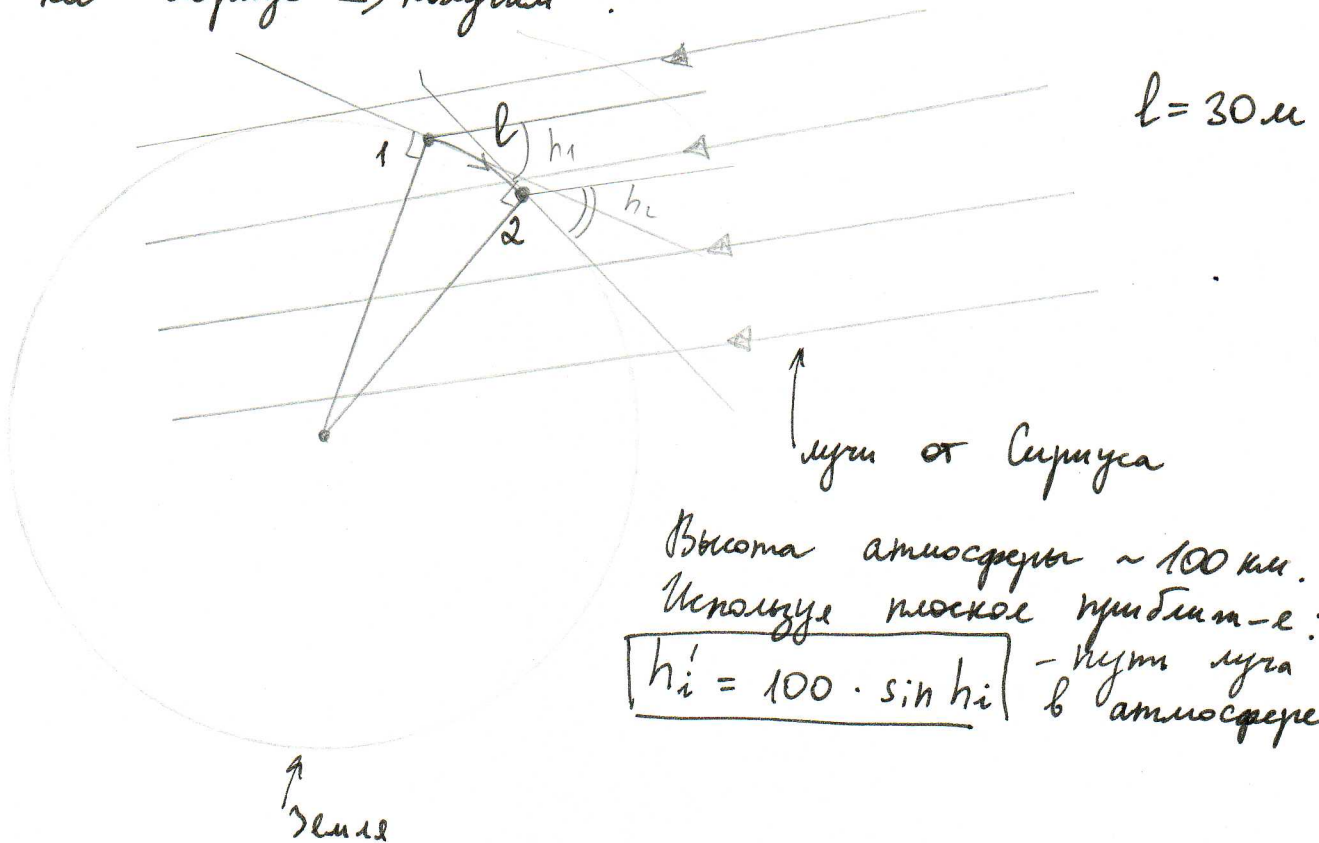 на Сириус => получим :
l = 30 м
1
l
h₁
2
h₂
лучи от Сириуса
Высота атмосферы ~ 100 км.
Используя плоское приближ-е :
hᵢ' = 100 · sin hᵢ - путь луча
в атмосфере
Земля